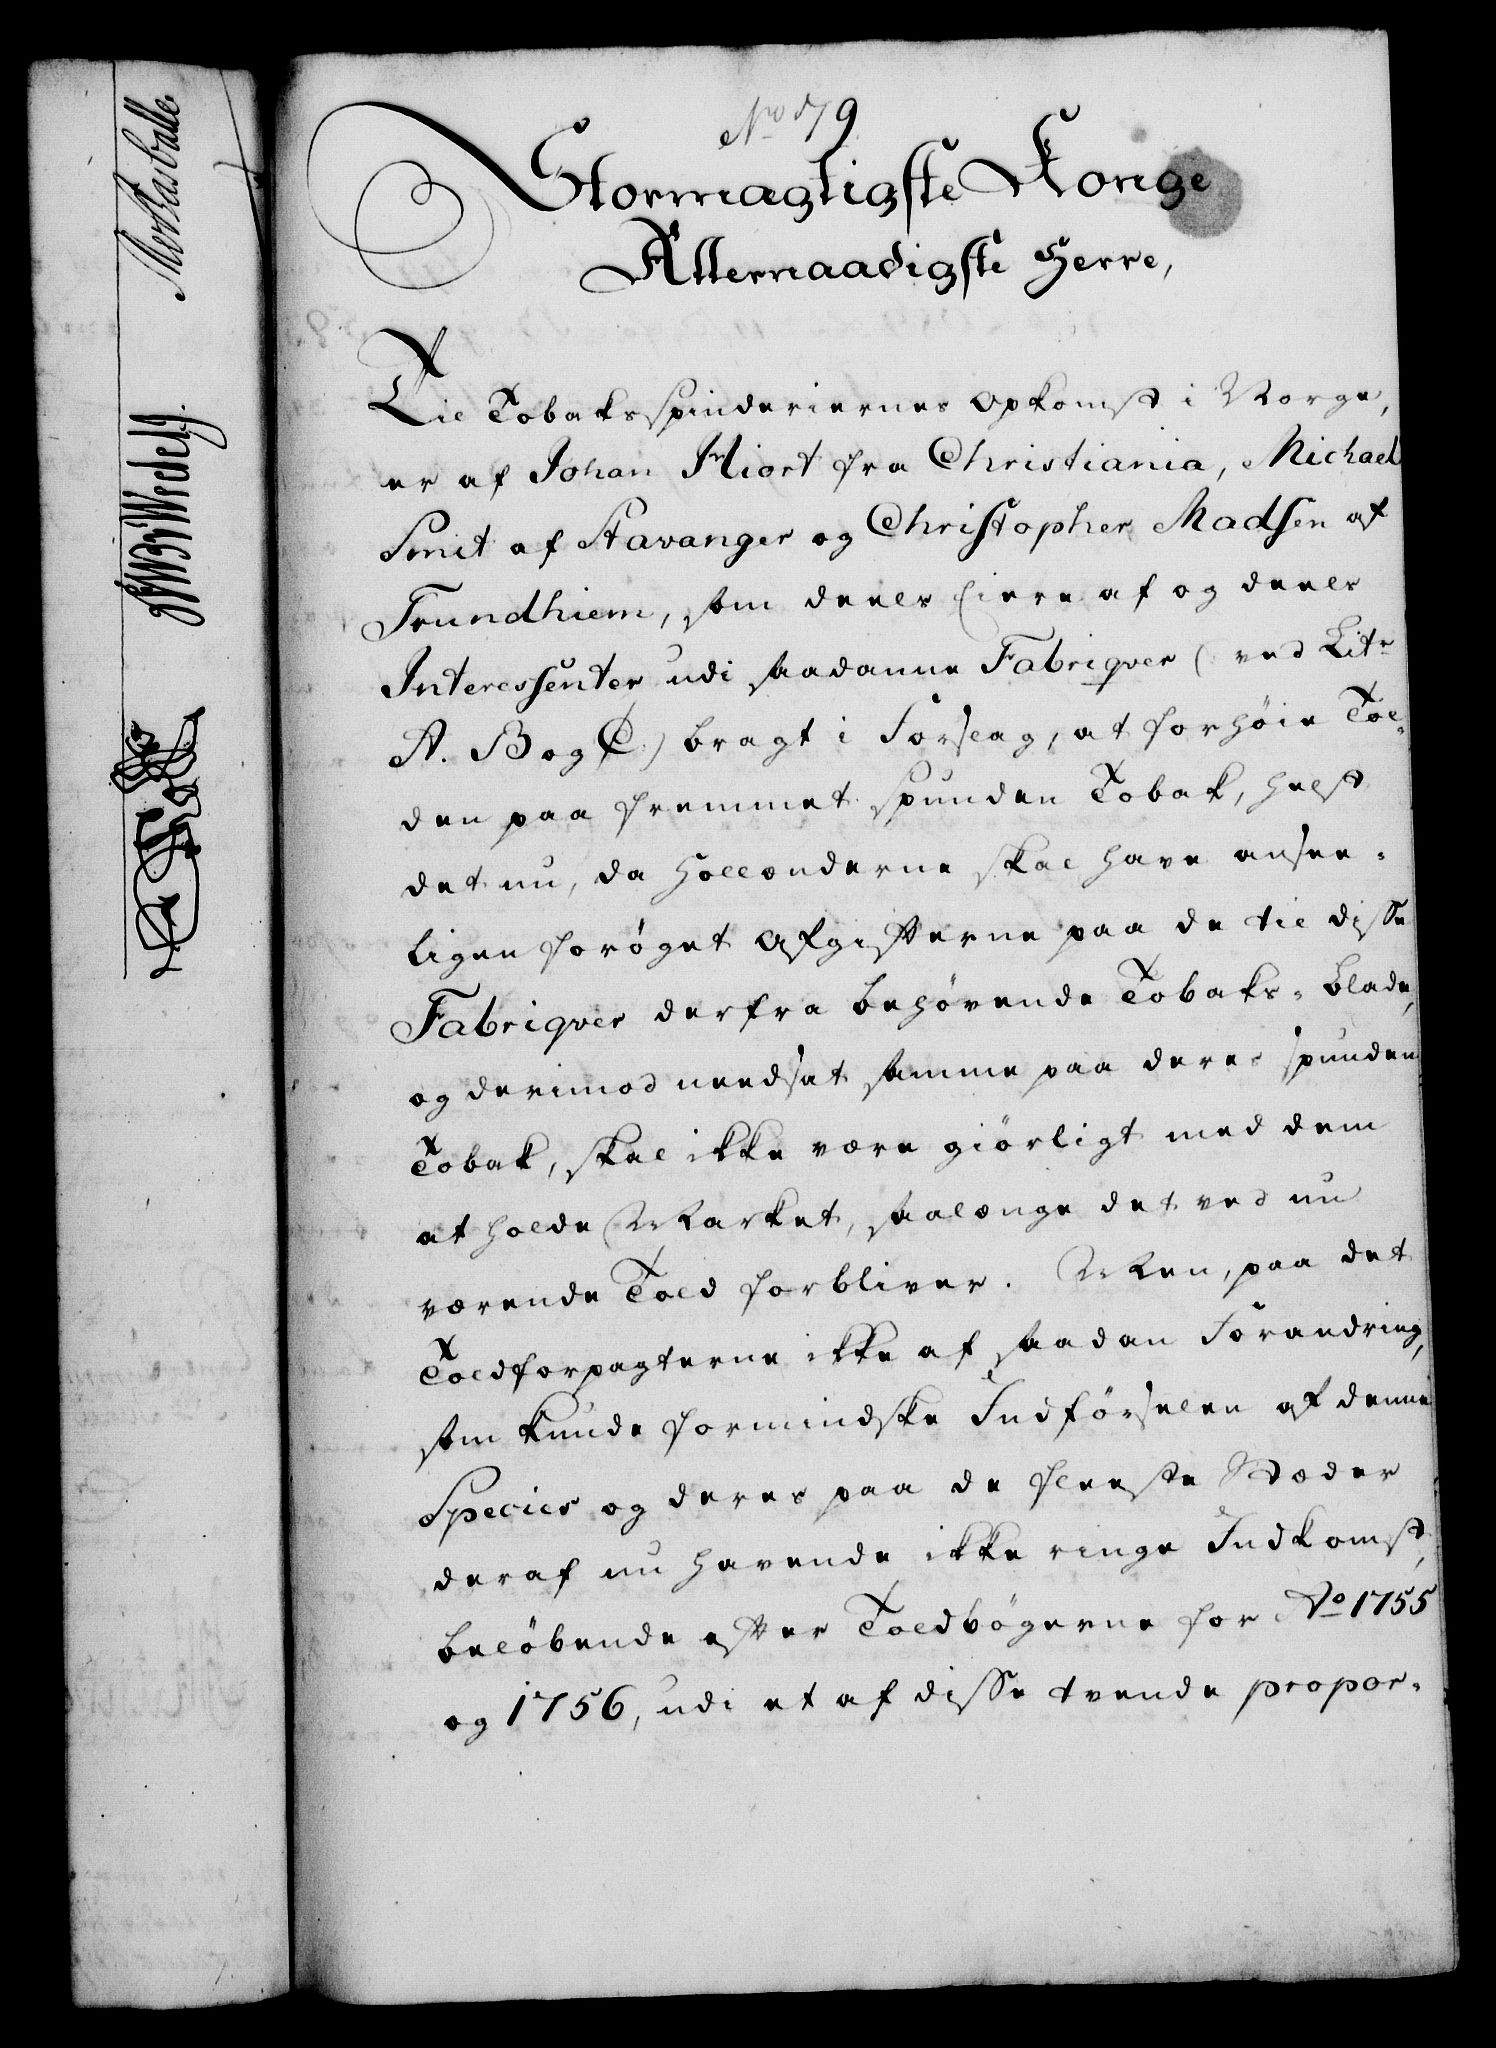 No 79
Stormagtigste Konge
Allernaadigste Herre,
Til Tobaksspinderiernes Opkomst i Norge,
er af Johan Hiort fra Christiania, Michael
Smit af Stavanger og Christopher Madsen af
Trundhiem, som deels Eiere af og deels
Interessenter udi saadanne Fabriqver (: ved Litr
A. B og C:) bragt i Forslag, at forhöie Tol-
den paa fremmet spunden Tobak, helst
det nu, da Hollænderne skal have ansee-
ligen forøget Afgifterne paa de til disse
Fabriqver derfra behövende Tobaks-Blade,
og derimod needsat samme paa deres spunden
Tobak, skal ikke være giörligt med dem
at holde Market, saalænge det ved nu
værende Told forbliver. Men, paa det
Toldforpagterne ikke af saadan Forandring,
som kunde formindske Indförselen af denne
Species og deres paa de fleeste Stæder
deraf nu havende ikke ringe Indkomst,
belöbende efter Toldbögerne for Ao 1755
og 1756, udi et af disse tvende propor-